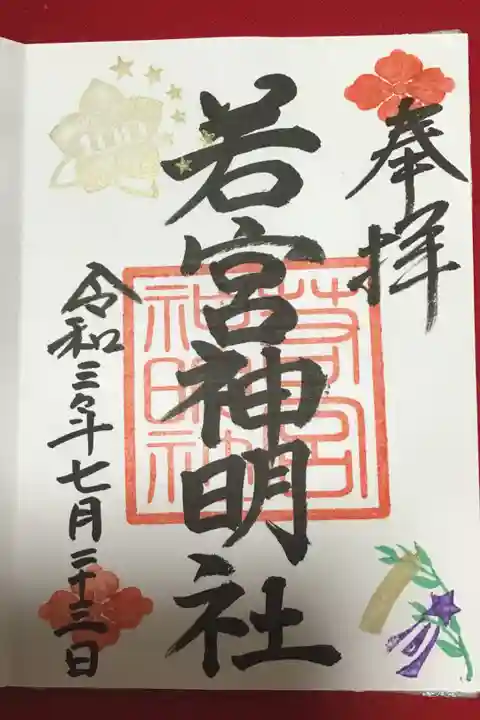 奉拝
若宮神明社
若宮
神明社
令和三年七月二十三日